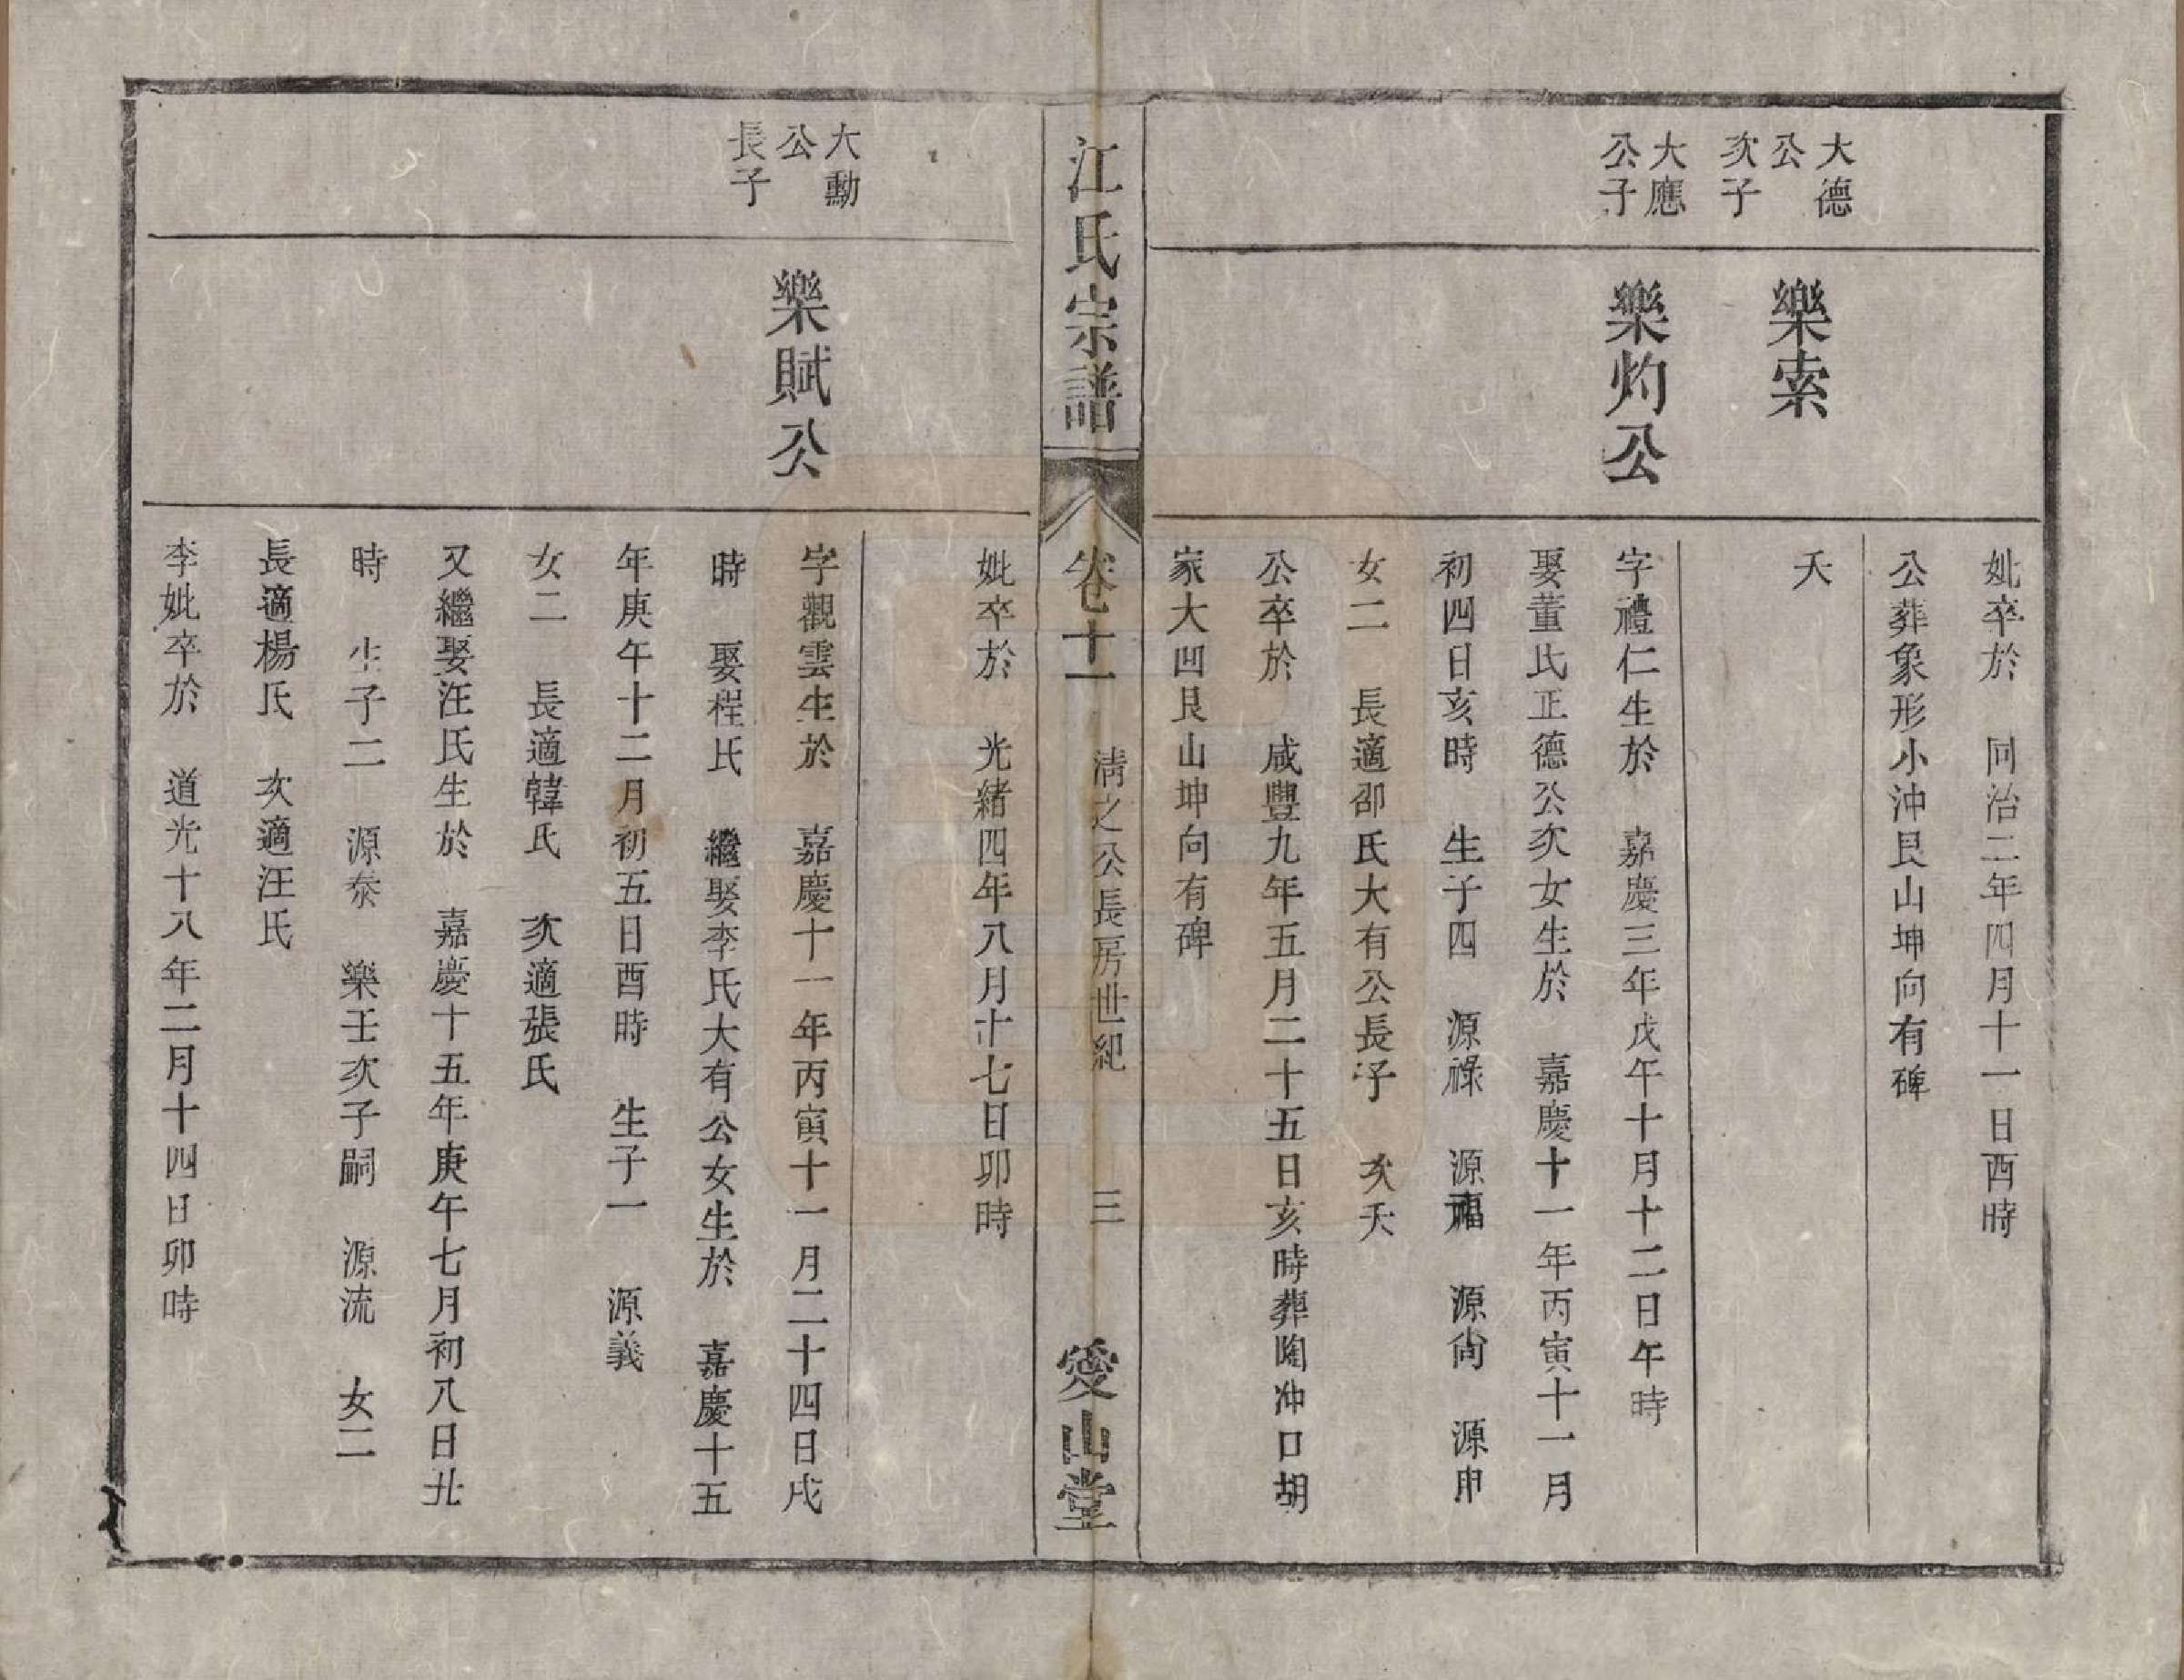 妣卒於　同治二年四月十一日酉時
公葬象形小沖艮山坤向有碑
大德
公
次子
樂索
夭
大應
公子
樂灼公
字禮仁生於　嘉慶三年戊午十月十二日午時
娶董氏正德公次女生於　嘉慶十一年丙寅十一月
初四日亥時　生子四　源祿　源福　源尚　源申
女二　長適邵氏大有公長子　次夭
公卒於　咸豐九年五月二十五日亥時葬陶冲口胡
家大凹艮山坤向有碑
江氏宗譜
卷十一　清之公長房世紀　三
愛山堂
妣卒於　光緒四年八月十七日卯時
大勳
公
長子
樂賦公
字觀雲生於　嘉慶十一年丙寅十一月二十四日戌
時　娶程氏　繼娶李氏大有公女生於　嘉慶十五
年庚午十二月初五日酉時　生子一　源義
女二　長適韓氏　次適張氏
又繼娶汪氏生於　嘉慶十五年庚午七月初八日丑
時　生子二　源泰　樂壬次子嗣　源流　女二
長適楊氏　次適汪氏
李妣卒於　道光十八年二月十四日卯時